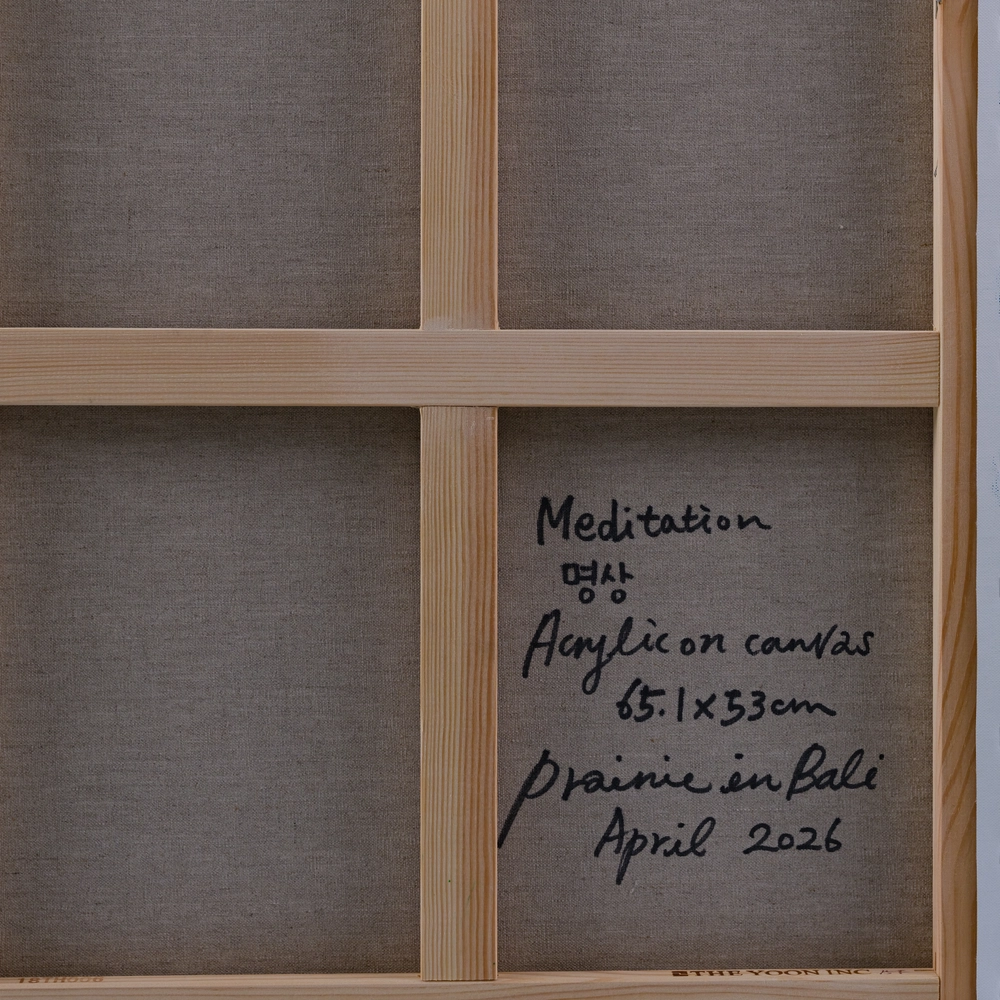 Meditation
명상
Acrylic on canvas
65.1x53cm
prainie in Bali
April 2026
THE YOON INC